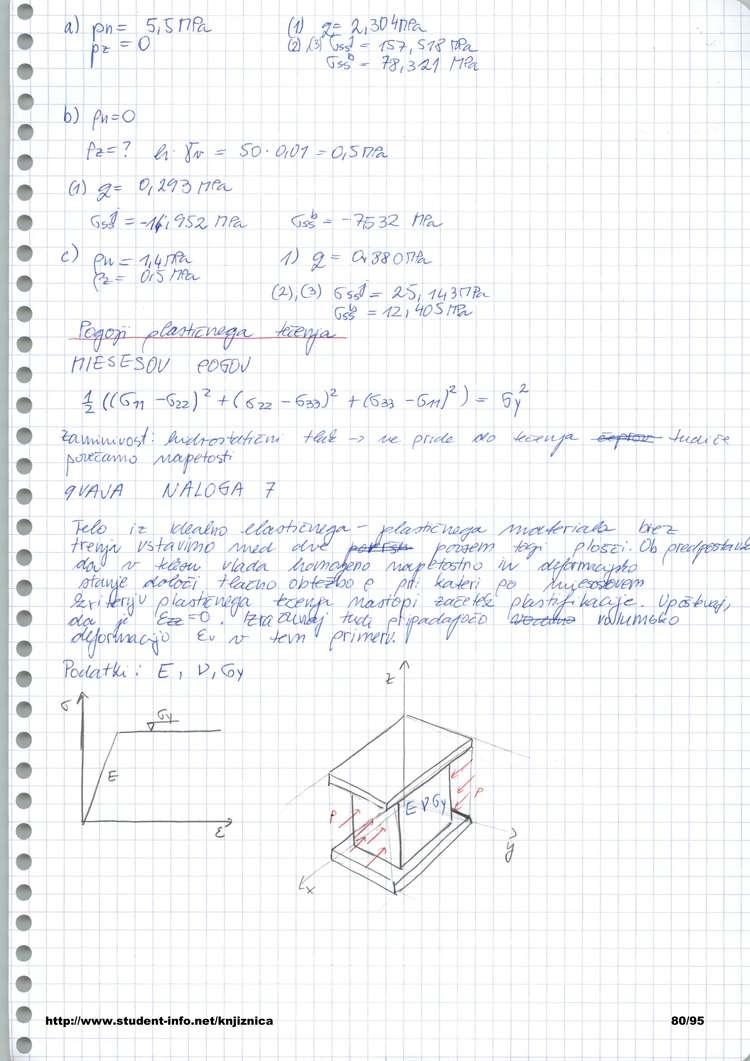 a) pn = 5,5 MPa (1) q = 2,304 MPa
pz = 0 (2),(3) σss^j = 157,518 MPa
σss^b = 78,321 MPa
b) pn = 0
pz = ? h · γv = 50 · 0,01 = 0,5 MPa
(1) q = 0,293 MPa
σss^j = -14,952 MPa σss^b = -7532 MPa
c) pn = 1,4 MPa 1) q = 0,380 MPa
pz = 0,5 MPa
(2),(3) σss^j = 25,143 MPa
σss^b = 12,405 MPa
Pogoji plastičnega tečenja
MIESESOV POGOJ
1/2 ((σ11 - σ22)² + (σ22 - σ33)² + (σ33 - σ11)²) = σy²
zanimivost: hidrostatični tlak → ne pride do tečenja čeprav tudi če
povečamo napetosti
9VAJA NALOGA 7
Telo iz idealno elastičnega - plastičnega materiala brez
trenja vstavimo med dve povsem togi plošči. Ob predpostavki
da v telesu vlada homogeno napetostno in deformacijsko
stanje določi tlačno obtežbo p pri kateri po Miesesovem
kriteriju plastičnega tečenja nastopi začetek plastifikacije. Upoštevaj,
da je εzz = 0. Izračunaj tudi pripadajočo volumsko
deformacijo εv v tem primeru.
Podatki: E, ν, σy
z
σ σy
E
E ν σy
p p
ε
y
x
http://www.student-info.net/knjiznica 80/95